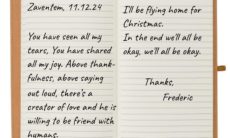 Zaventem, 11.12.24
You have seen all my
tears, You have shared
all my joy. Above thank-
fulness, above saying
out loud, there's a
creator of love and he is
willing to be friend with
humans.
I'll be flying home for
Christmas.
In the end we'll all be
okay, we'll all be okay.
Thanks,
Frederic